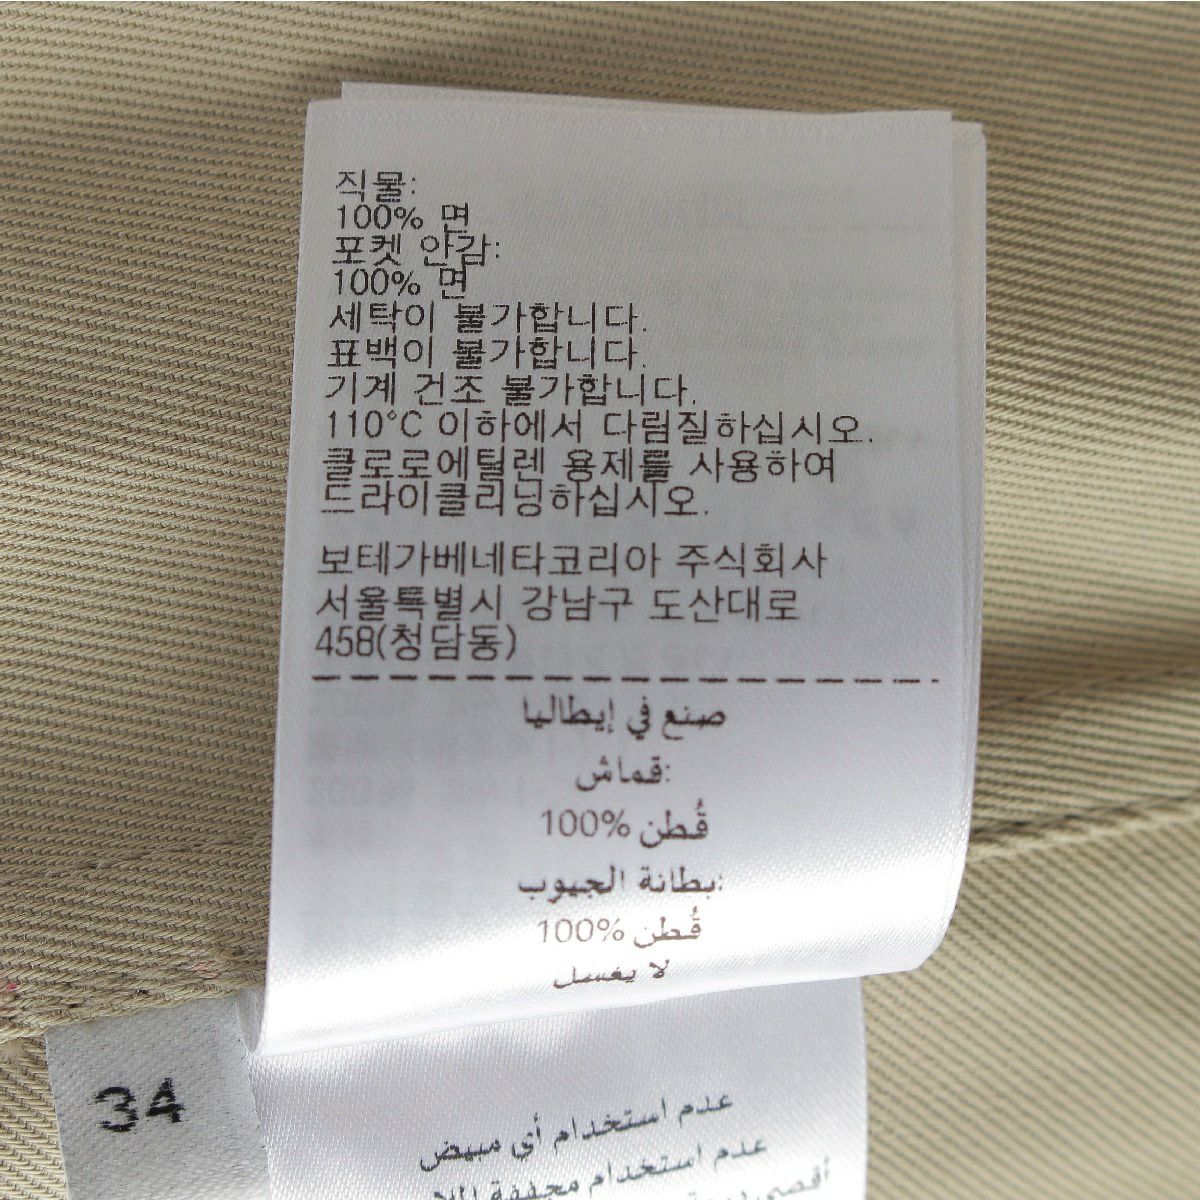 직물:
100% 면
포켓 안감:
100% 면
세탁이 불가합니다.
표백이 불가합니다.
기계 건조 불가합니다.
110°C 이하에서 다림질하십시오.
클로로에틸렌 용제를 사용하여
드라이클리닝하십시오.
보테가베네타코리아 주식회사
서울특별시 강남구 도산대로
458(청담동)
صنع في إيطاليا
قماش:
100% قُطن
بطانة الجيوب:
100% قُطن
لا يغسل
34
عدم استخدام أي مبيض
عدم استخدام مجففة
أقصى